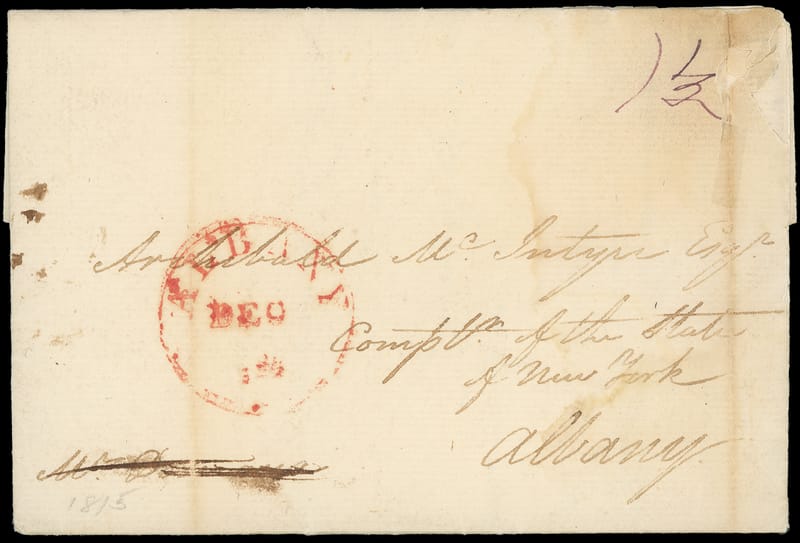 1½
Archibald Mc Intyre Esqr
ALBANY
DEC
Comptr. of the State
of New York
Albany.
Mr.
1815